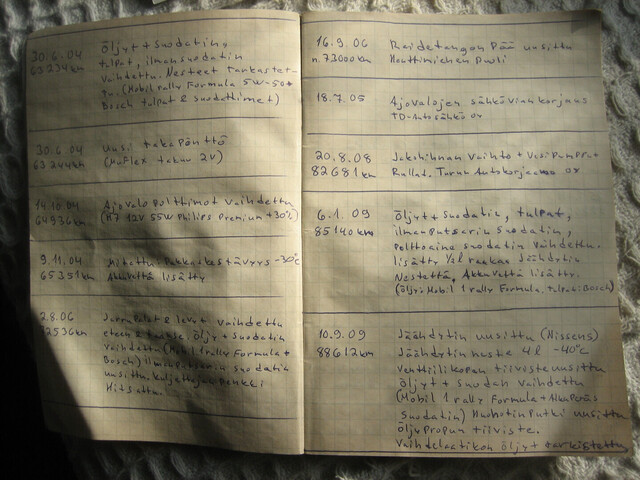 30.6.04 Öljyt + Suodatin,
63234km tulpat, ilmansuodatin
vaihdettu. Nesteet Tarkastet-
tu. (Mobil rally Formula 5W-50+
Bosch tulpat & suodattimet)
30.6.04 Uusi takapönttö
63244km (Muflex takuu 2V)
14.10.04 Ajovalo polttimot vaihdettu
64936km (H7 12V 55W Philips Premium +30%)
9.11.04 Mitattu Pakkaskestävyys -30°C
65351km Akkuvettä lisätty
2.8.06 Jarrupalat & levyt vaihdettu
72536km eteen & taakse. Öljyt + Suodatin
vaihdettu (Mobil 1 rally Formula +
Bosch) Ilmanputsarin suodatin
uusittu. Kuljettajan Penkki
Hitsattu.
16.9.06 Raidetangon Pää uusittu
n.73000km Huoltimiehen Puoli
18.7.05 Ajovalojen sähkövian korjaus
TD-Autosähkö oy
20.8.08 Jakohihnan Vaihto + Vesipumppu +
82681km Rullat. Turun Autokorjaamo oy
6.1.09 Öljyt + Suodatin, tulpat,
85140km ilmanputsarin Suodatin,
Polttoaine suodatin vaihdettu.
lisätty ½l raakaa Jäähdytin
Nestettä, Akkuvettä lisätty.
(Öljy: Mobil 1 rally Formula, tulpat: Bosch)
10.9.09 Jäähdytin uusittu (Nissens)
88612km Jäähdytinneste 4l -40°C
Venttiilikopan tiiviste uusittu
Öljyt + Suodatin vaihdettu
(Mobil 1 rally Formula +
Suodatin) Huohotinputki uusittu
Öljypropun tiiviste.
Vaihdelaatikon öljyt tarkistettu